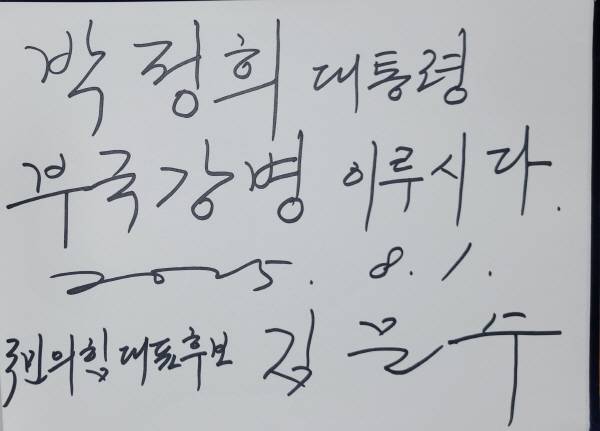 박정희 대통령
부국강병 이루시다.
2025. 8. 1.
국민의힘 대표후보 김문수